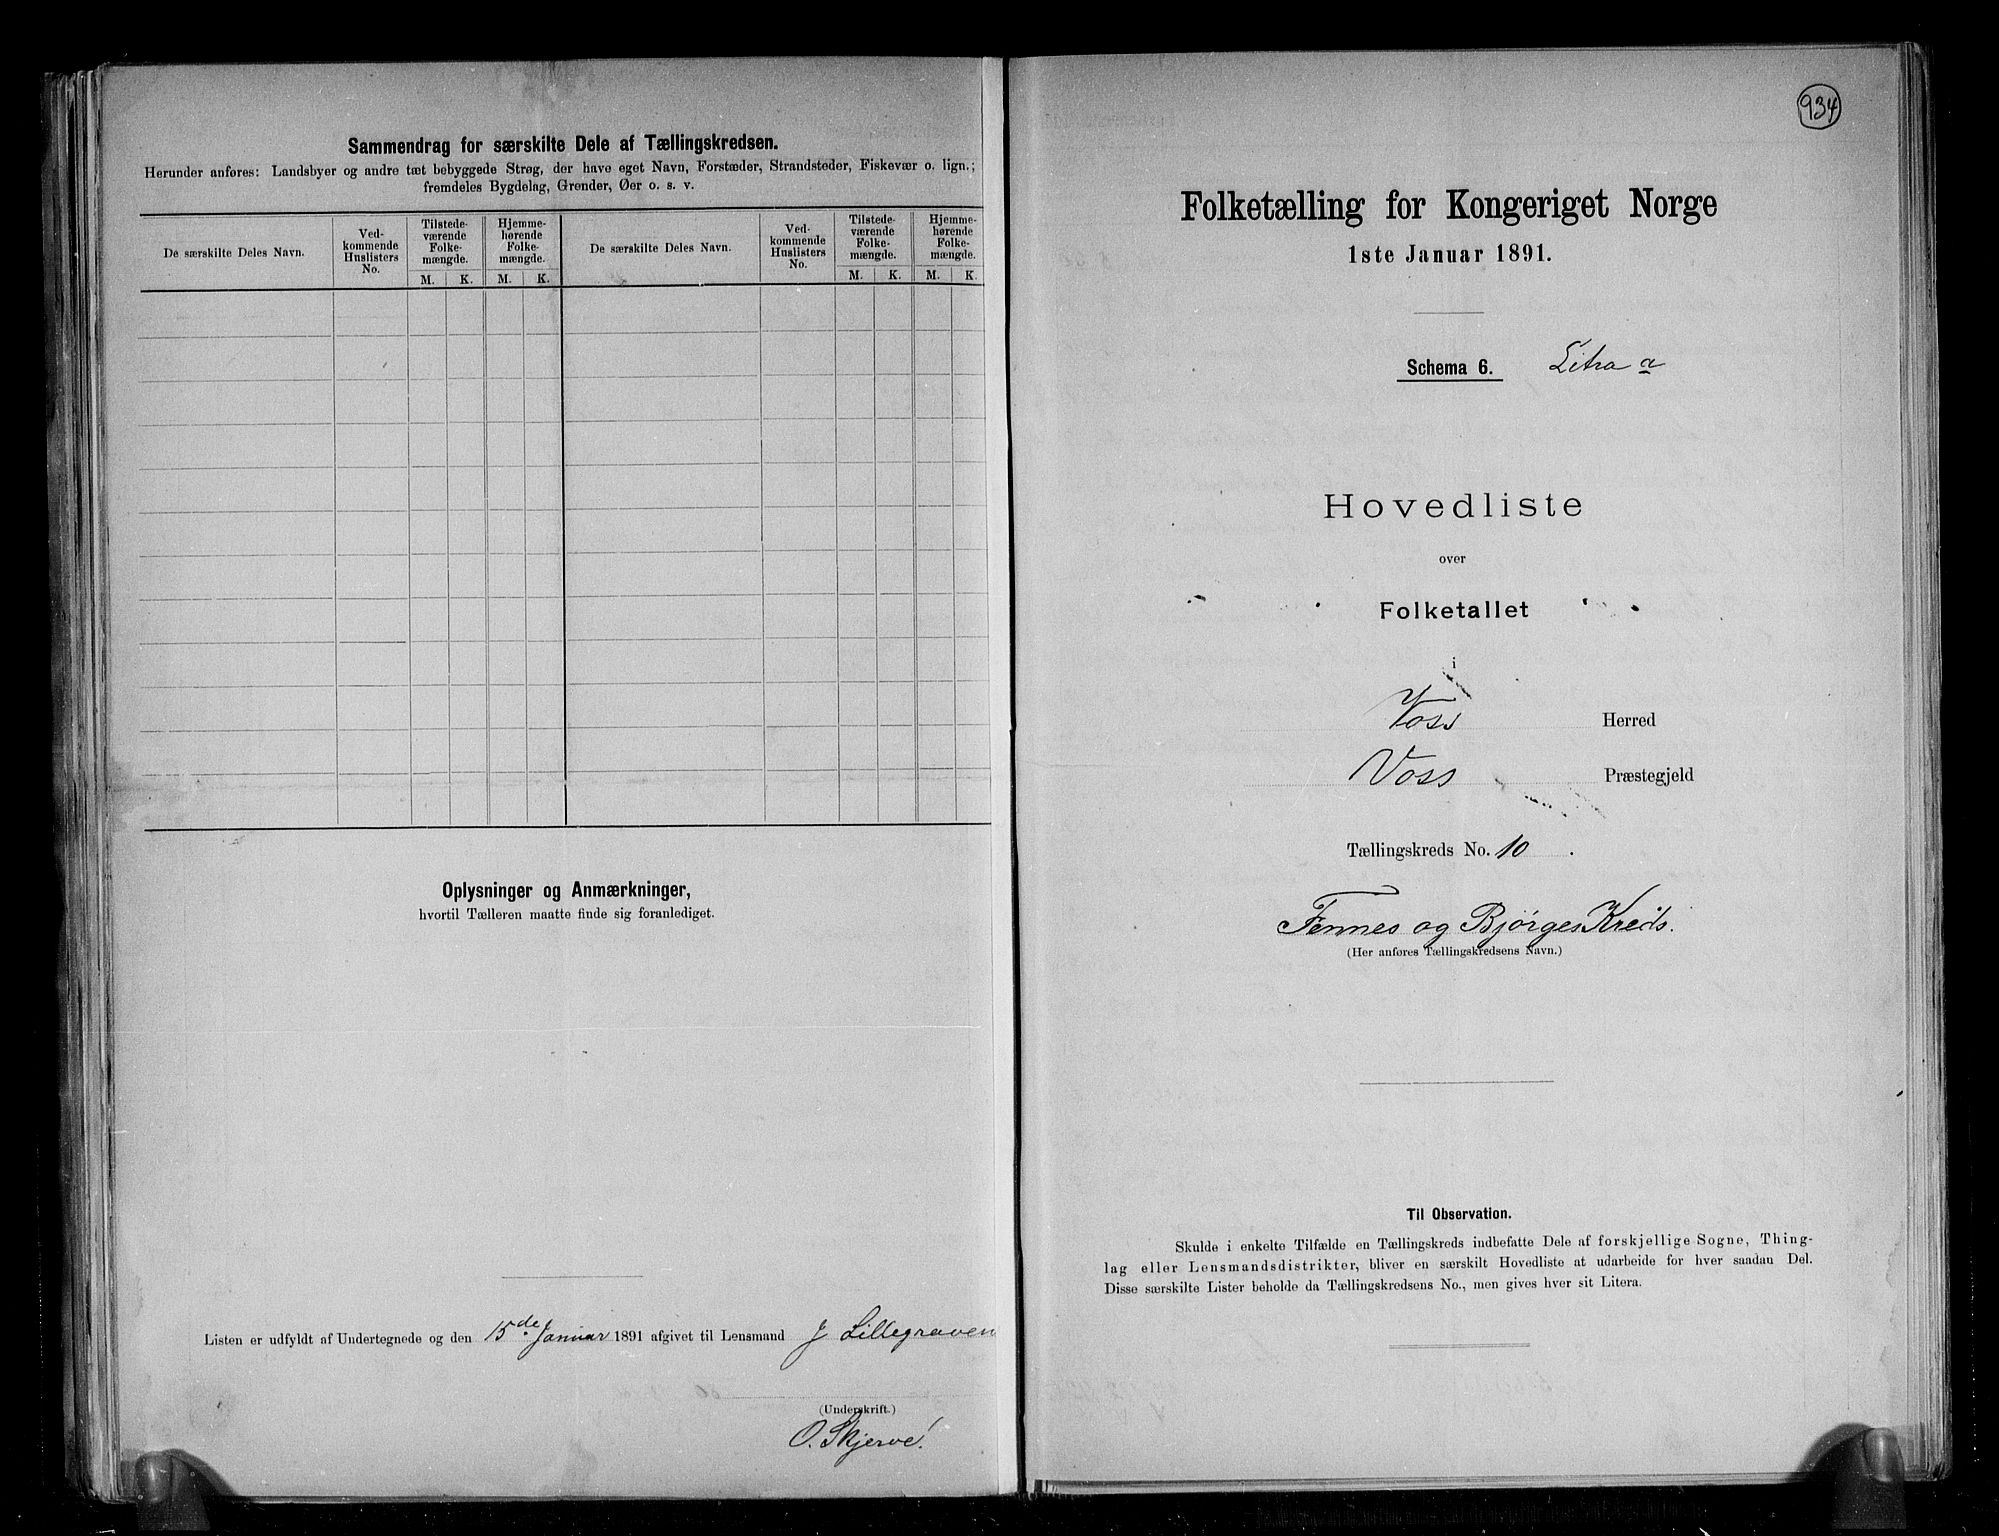 Sammendrag for særskilte Dele af Tællingskredsen.
Herunder anføres: Landsbyer og andre tæt bebyggede Strøg, der have eget Navn, Forstæder, Strandsteder, Fiskevær o. lign.;
fremdeles Bygdelag, Grender, Øer o. s. v.
De særskilte Deles Navn.
Ved-
kommende
Huslisters
No.
Tilstede-
værende
Folke-
mængde.
Hjemme-
hørende
Folke-
mængde.
M. K. M. K.
De særskilte Deles Navn.
Ved-
kommende
Huslisters
No.
Tilstede-
værende
Folke-
mængde.
Hjemme-
hørende
Folke-
mængde.
M. K. M. K.
Oplysninger og Anmærkninger,
hvortil Tælleren maatte finde sig foranlediget.
Listen er udfyldt af Undertegnede og den 15de Januar 1891 afgivet til Lensmand J Lillegraven
(Underskrift.)
O. Skjerve!
934
Folketælling for Kongeriget Norge
1ste Januar 1891.
Schema 6. Litra a
Hovedliste
over
Folketallet
i
Voss Herred
Voss Præstegjeld
Tællingskreds No. 10.
Fennes og Bjørges Kreds.
(Her anføres Tællingskredsens Navn.)
Til Observation.
Skulde i enkelte Tilfælde en Tællingskreds indbefatte Dele af forskjellige Sogne, Thing-
lag eller Lensmandsdistrikter, bliver en særskilt Hovedliste at udarbeide for hver saadan Del.
Disse særskilte Lister beholde da Tællingskredsens No., men gives hver sit Litera.